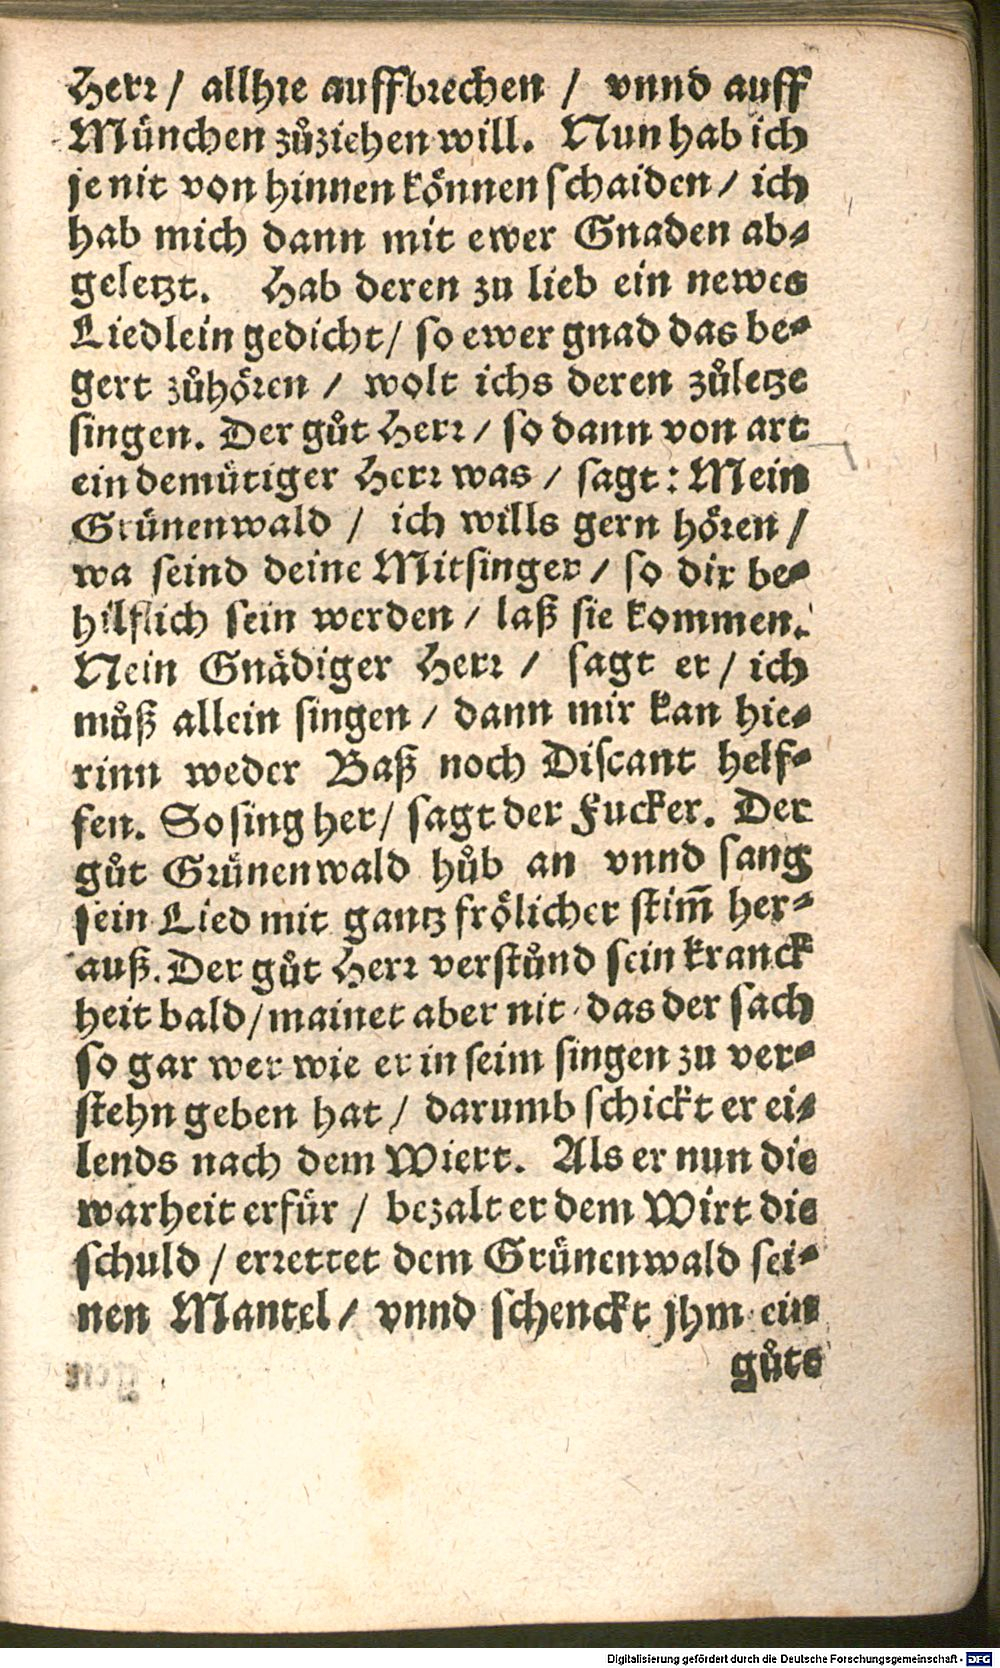 Herr / allhie auffbrechen / vnnd auff
München zůziehen will. Nun hab ich
je nit von hinnen können schaiden / ich
hab mich dann mit ewer Gnaden ab-
geletzt. Hab deren zu lieb ein newes
Liedlein gedicht / so ewer gnad das be-
gert zůhören / wolt ichs deren zůletze
singen. Der gůt Herr / so dann von art
ein demütiger Herr was / sagt: Mein
Grünenwald / ich wills gern hören /
wa seind deine Mitsinger / so dir be-
hilflich sein werden / laß sie kommen.
Nein Gnädiger Herr / sagt er / ich
můß allein singen / dann mir kan hie-
rinn weder Baß noch Discant helf-
fen. So sing her / sagt der Fucker. Der
gůt Grünenwald hůb an vnnd sang
sein Lied mit gantz frölicher stim̃ her-
auß. Der gůt Herr verstůnd sein kranck
heit bald / mainet aber nit das der sach
so gar wer wie er in seim singen zu ver-
stehn geben hat / darumb schickt er ei-
lends nach dem Wiert. Als er nun die
warheit erfür / bezalt er dem Wirt die
schuld / errettet dem Grünenwald sei-
nen Mantel / vnnd schenckt jhm ein
gůts
Digitalisierung gefördert durch die Deutsche Forschungsgemeinschaft - DFG